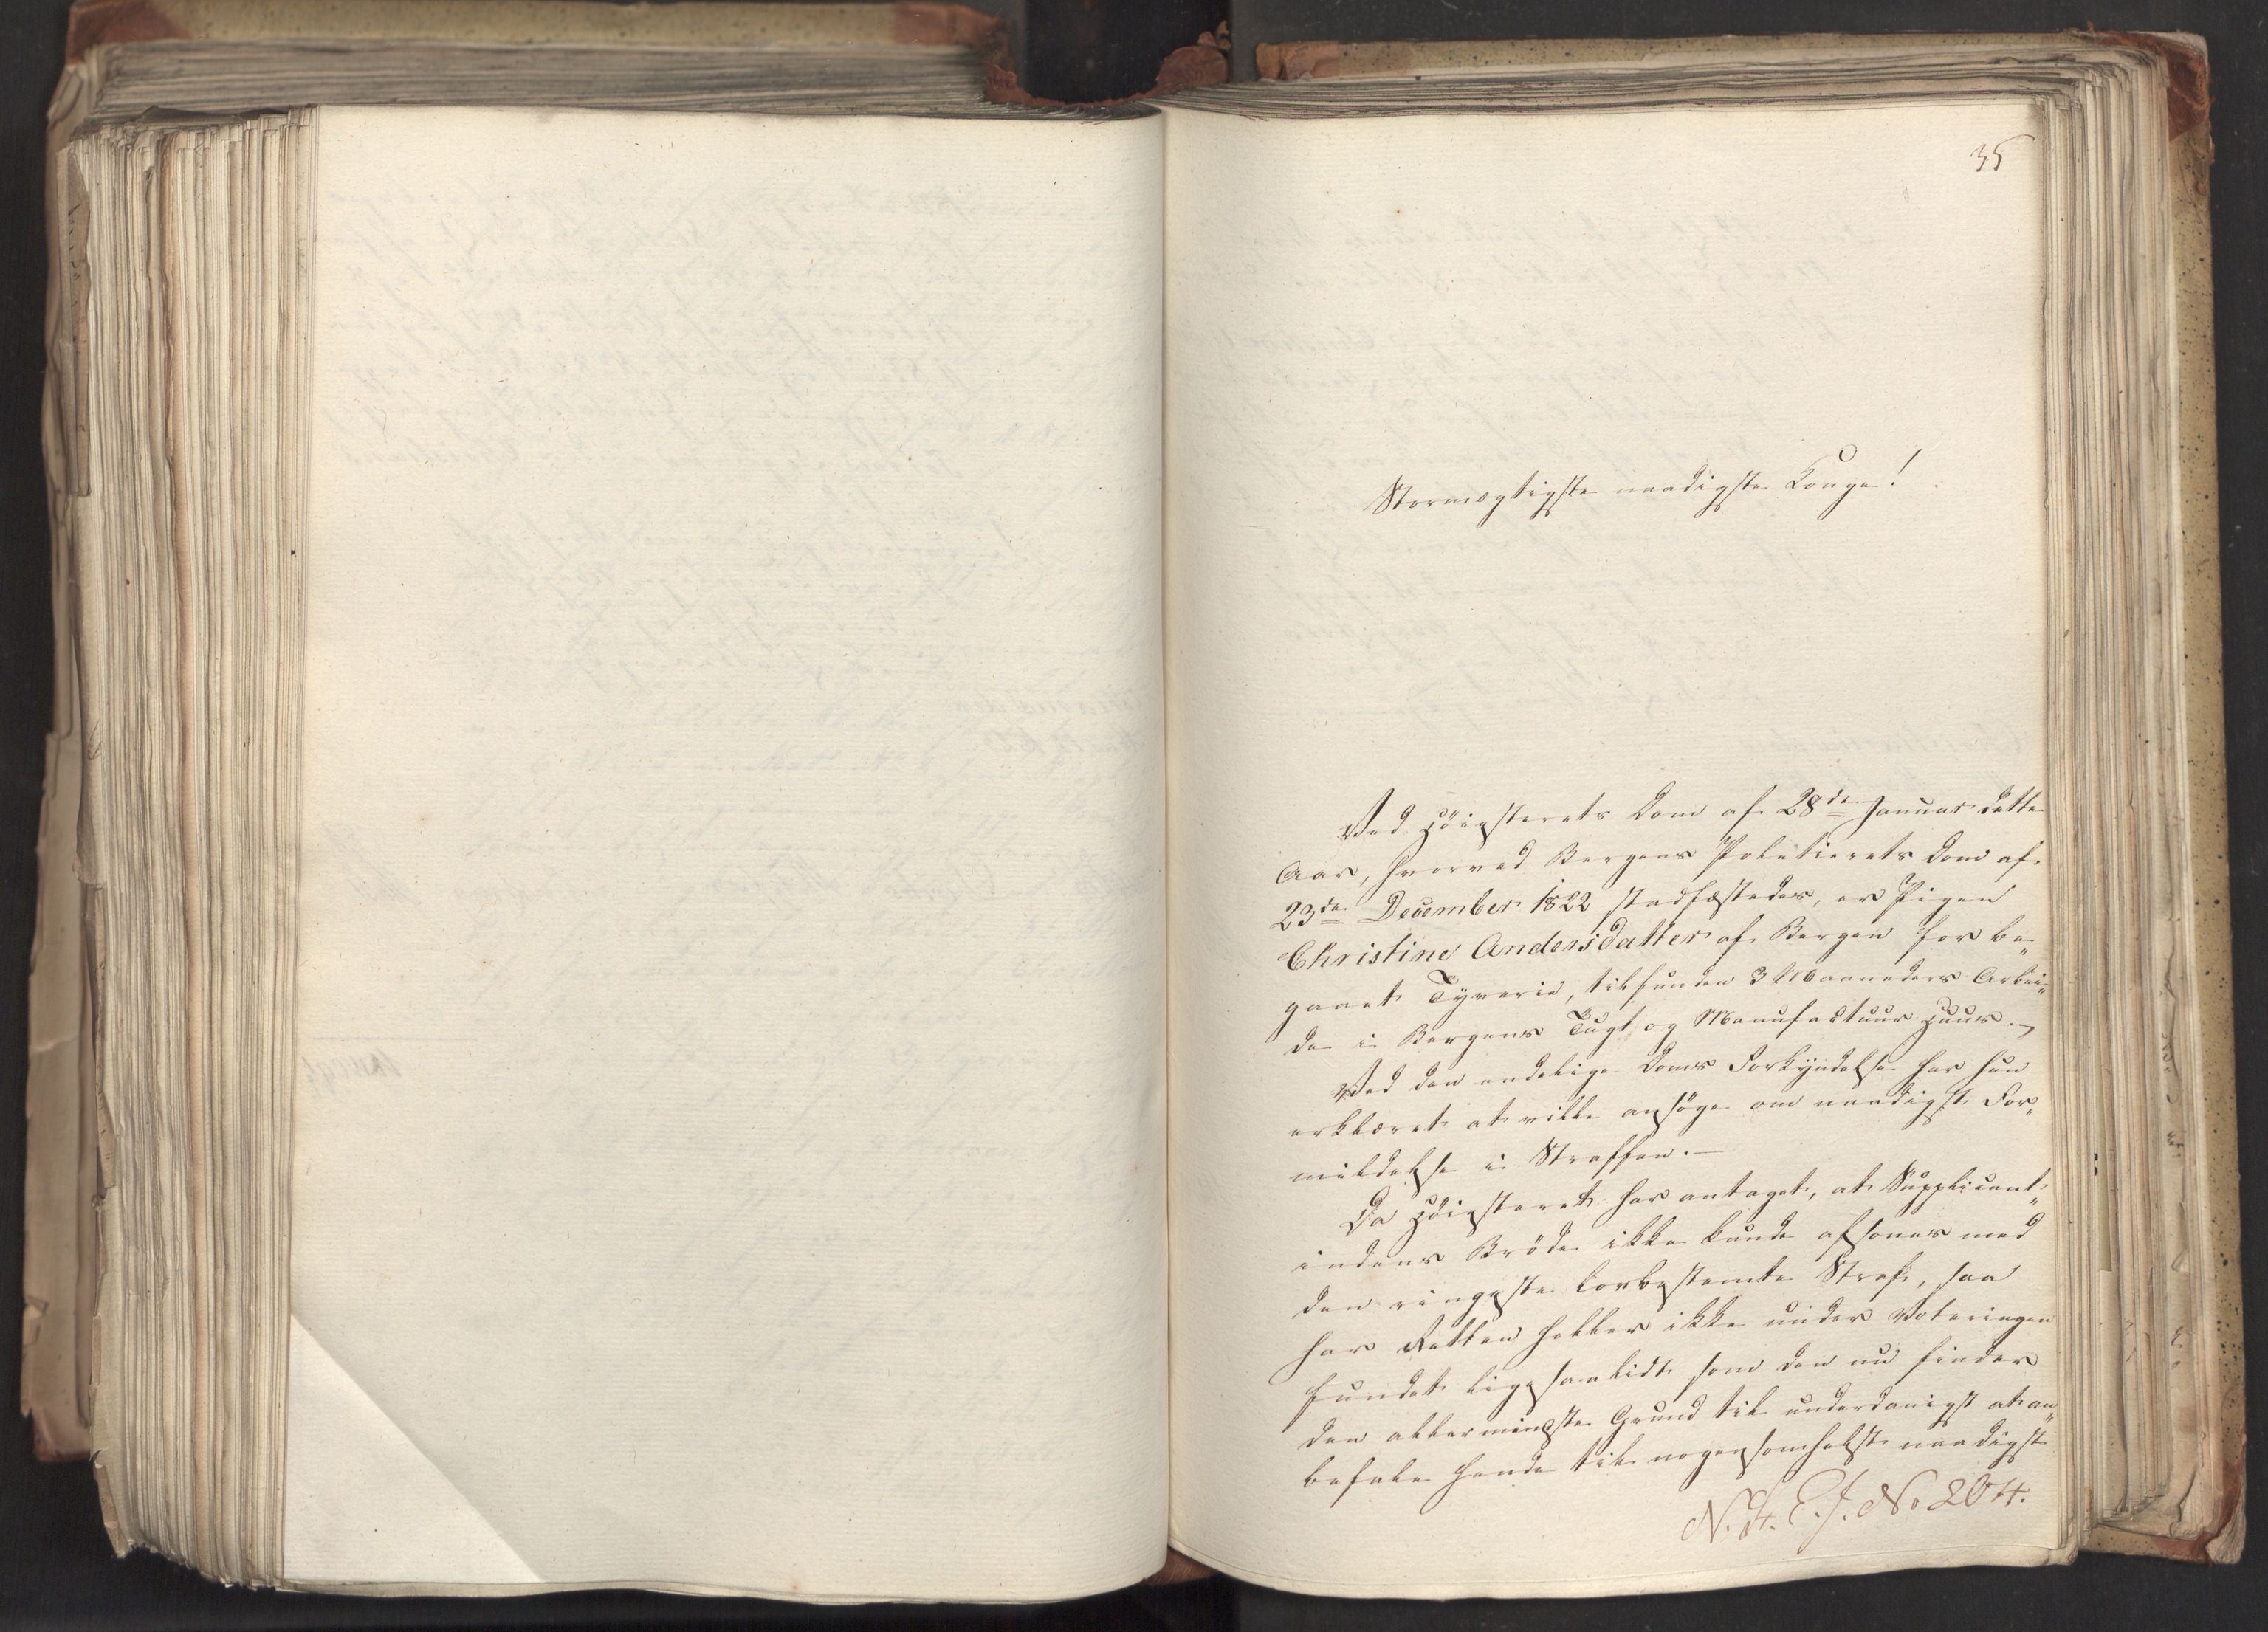 35
Stormægtigste naadigste Konge!
Ved Høiesterets Dom af 28de Januar dette
Aar, hvorved Bergens Politierets Dom af
23de December 1822 stadfæstedes, er Pigen
Christine Andersdatter af Bergen for be„
gaaet Tyverie, tilfunden 3 Maaneders Arbei„
de i Bergens Tugt og Manufactuur Huus.—
Ved den endelige Doms Forkyndelse har hun
erklæret at ville ansøge om naadigst For„
mildelse i Straffen.—
Da Høiesteret har antaget, at Supplicant„
indens Brøde ikke kunde afsones med
den ringeste lovbestemte Straf, saa
har Retten heller ikke under Voteringen
fundet ligesaalidt som den nu finder
den allermindste Grund til underdanigst at an„
befale hende til nogensomhelst naadigst
N. H. E. J. No 204.